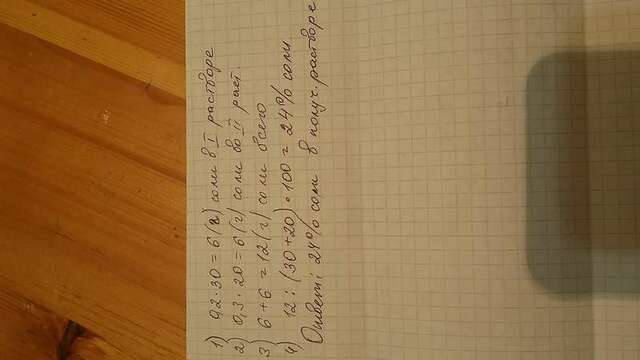 1) 0,2·30 = 6(г) соли в I растворе
2) 0,3·20 = 6(г) соли во II раст.
3) 6+6 = 12(г) соли всего
4) 12 : (30+20)·100 = 24% соли.
Ответ: 24% соли в получ. растворе